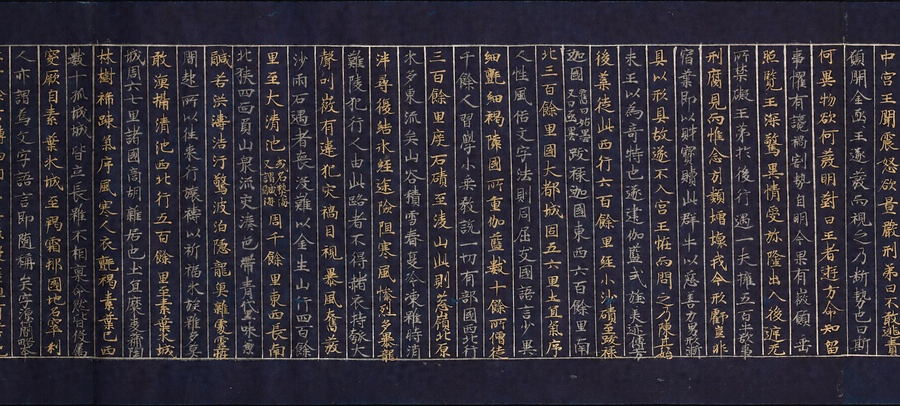 中宮王聞震怒欲置嚴刑弟曰不敢逃責
願開金函王遂發而視之乃斷勢也曰斯
何異物欲何發明對曰王者遊方命知留
事懼有讒禍割勢自明今果有徵願垂
照覽王深驚異情愛弥隆出入後庭无
所禁礙王弟於後行遇一夫擁五百牛欲事
刑腐見而惟念引類增懷我今形虧豈非
宿業即以財寶贖此群牛以慈善力男形漸
具以形具故遂不入宮王怪而問之乃陳其始
末王以為奇特也遂建伽藍式旌美迹傳芳
後葉從此西行六百餘里經小沙磧至跋祿
迦國舊曰姑墨又曰亟墨跋祿迦國東西六百餘里南
北三百餘里國大都城周五六里土宜氣序
人性風俗文字法則同屈支國語言少異
細氈細褐隣國所重伽藍數十餘所僧徒
千餘人習學小乘教說一切有部國西北行
三百餘里度石磧至淩山此則葱嶺北原
水多東流矣山谷積雪春夏合凍雖時消
泮尋復結氷經途險阻寒風慘烈多暴龍
難陵犯行人由此路者不得赭衣持瓠大
聲叫微有違犯災禍目覩暴風奮發
沙雨石遇者喪沒難以全生山行四百餘
里至大清池或名熱海又謂鹹海周千餘里東西長南
北狹四面負山衆流交湊色帶青黑味兼
鹹苦洪濤浩汗驚波泊隱龍魚雜處靈怪
間起所以往來行旅禱以祈福水族雖多莫
敢漁捕清池西北行五百餘里至素葉水城
城周六七里諸國商胡雜居也土宜糜麥蒲萄
林樹稀踈氣序風寒人衣氈褐素葉已西
數十孤城城皆立長雖不相稟命然皆役属
突厥自素葉水城至羯霜那國地名窣利
人亦謂焉文字語言即随稱矣字源簡略